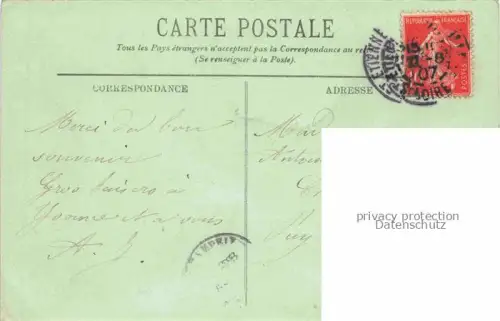 CARTE POSTALE
Tous les Pays étrangers n'acceptent pas la Correspondance au re
(Se renseigner à la Poste).
CORRESPONDANCE
ADRESSE
REPUBLIQUE FRANÇAISE
POSTES
ST ETIENNE
LOIRE
Merci du bon
souvenir
Gros baisers à
Yvonne et à vous
A. J.
Mad
Antoi
Puy
privacy protection
Datenschutz